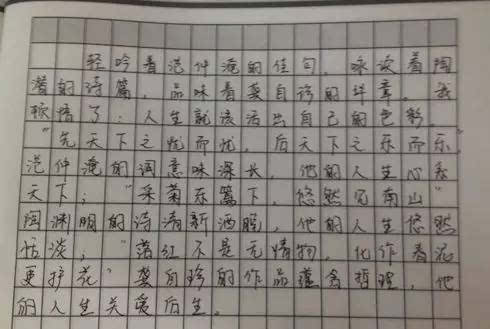 轻吟着范仲淹的佳句，咏读着陶
潜的诗篇，品味着龚自珍的评章，我
顿悟了：人生就该活出自己的色彩。
“先天下之忧而忧，后天下之乐而乐。”
范仲淹的词意味深长，他的人生心系
天下；“采菊东篱下，悠然见南山”
陶渊明的诗清新洒脱，他的人生悠然
恬淡；“落红不是无情物，化作春泥
更护花”龚自珍的作品蕴含哲理，他
的人生关爱后生。